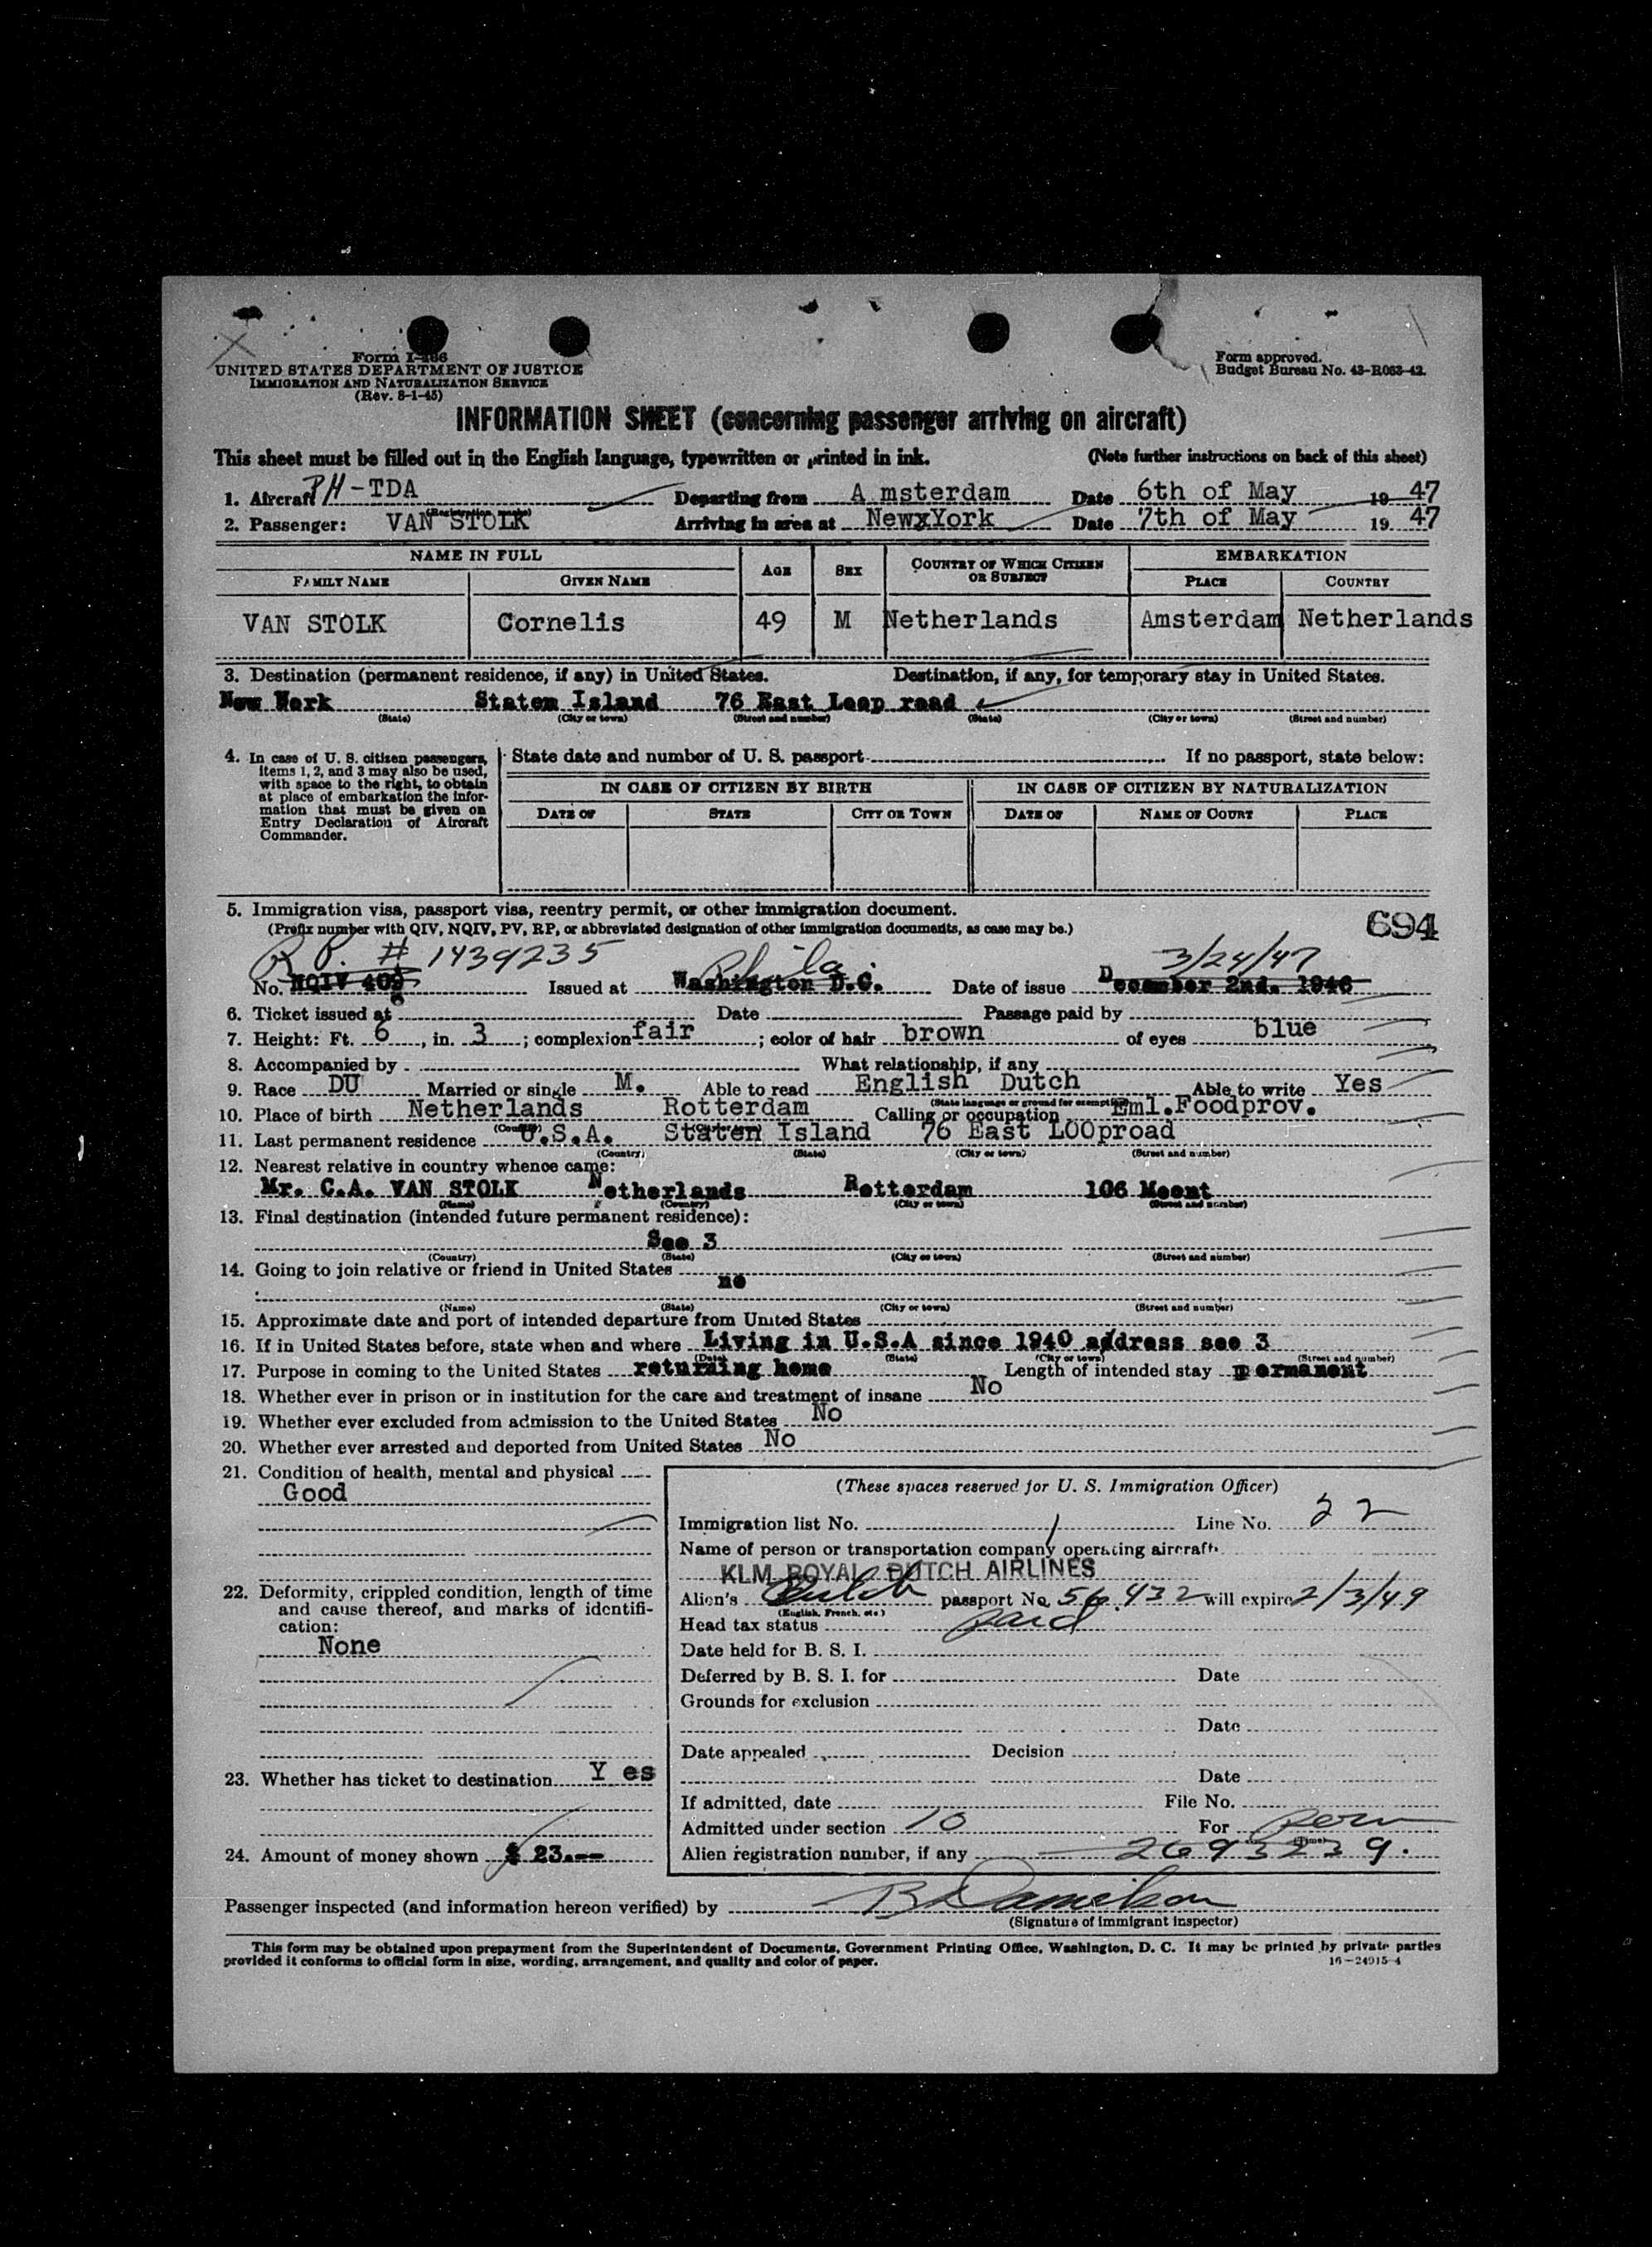 Form I-466
UNITED STATES DEPARTMENT OF JUSTICE
IMMIGRATION AND NATURALIZATION SERVICE
(Rev. 8-1-45)
Form approved.
Budget Bureau No. 43-R063-42.
INFORMATION SHEET (concerning passenger arriving on aircraft)
This sheet must be filled out in the English language, typewritten or printed in ink. (Note further instructions on back of this sheet)
1. Aircraft PH-TDA Departing from A msterdam Date 6th of May 19 47
(Registration marks)
2. Passenger: VAN STOLK Arriving in area at NewxYork Date 7th of May 19 47
NAME IN FULL AGE SEX COUNTRY OF WHICH CITIZEN OR SUBJECT EMBARKATION
FAMILY NAME GIVEN NAME PLACE COUNTRY
VAN STOLK Cornelis 49 M Netherlands Amsterdam Netherlands
3. Destination (permanent residence, if any) in United States. Destination, if any, for temporary stay in United States.
New York Staten Island 76 East Loop road
(State) (City or town) (Street and number) (State) (City or town) (Street and number)
4. In case of U. S. citizen passengers, items 1, 2, and 3 may also be used, with space to the right, to obtain at place of embarkation the information that must be given on Entry Declaration of Aircraft Commander.
State date and number of U. S. passport If no passport, state below:
IN CASE OF CITIZEN BY BIRTH IN CASE OF CITIZEN BY NATURALIZATION
DATE OF STATE CITY OR TOWN DATE OF NAME OF COURT PLACE
5. Immigration visa, passport visa, reentry permit, or other immigration document.
(Prefix number with QIV, NQIV, PV, RP, or abbreviated designation of other immigration documents, as case may be.) 694
R P. # 1439235 Phila. 3/24/47
No. NQIV 409 Issued at Washington D.C. Date of issue December 2nd. 1946
6. Ticket issued at Date Passage paid by
7. Height: Ft. 6, in. 3; complexion fair; color of hair brown of eyes blue
8. Accompanied by What relationship, if any
9. Race DU Married or single M. Able to read English Dutch Able to write Yes
(State language or ground for exemption)
10. Place of birth Netherlands Rotterdam Calling or occupation Eml.Foodprov.
(Country) (City or town)
11. Last permanent residence U.S.A. Staten Island 76 East LOOproad
(Country) (State) (City or town) (Street and number)
12. Nearest relative in country whence came:
Mr. C.A. VAN STOLK Netherlands Rotterdam 106 Meent
(Name) (Country) (City or town) (Street and number)
13. Final destination (intended future permanent residence):
See 3
(Country) (State) (City or town) (Street and number)
14. Going to join relative or friend in United States
no
(Name) (State) (City or town) (Street and number)
15. Approximate date and port of intended departure from United States
16. If in United States before, state when and where Living in U.S.A since 1940 address see 3
(Date) (State) (City or town) (Street and number)
17. Purpose in coming to the United States returning home Length of intended stay permanent
18. Whether ever in prison or in institution for the care and treatment of insane No
19. Whether ever excluded from admission to the United States No
20. Whether ever arrested and deported from United States No
21. Condition of health, mental and physical
Good
22. Deformity, crippled condition, length of time
and cause thereof, and marks of identifi-
cation:
None
23. Whether has ticket to destination Y es
24. Amount of money shown $ 23.--
(These spaces reserved for U. S. Immigration Officer)
Immigration list No. 1 Line No. 22
Name of person or transportation company operating aircraft
KLM ROYAL DUTCH AIRLINES
Alien's Dutch passport No. 56432 will expire 2/3/49
(English, French, etc)
Head tax status paid
Date held for B. S. I.
Deferred by B. S. I. for Date
Grounds for exclusion
Date
Date appealed Decision
Date
If admitted, date File No.
Admitted under section 10 For Perm
(Time)
Alien registration number, if any 2693239.
Passenger inspected (and information hereon verified) by
(Signature of immigrant inspector)
This form may be obtained upon prepayment from the Superintendent of Documents, Government Printing Office, Washington, D. C. It may be printed by private parties
provided it conforms to official form in size, wording, arrangement, and quality and color of paper. 16-24915-4